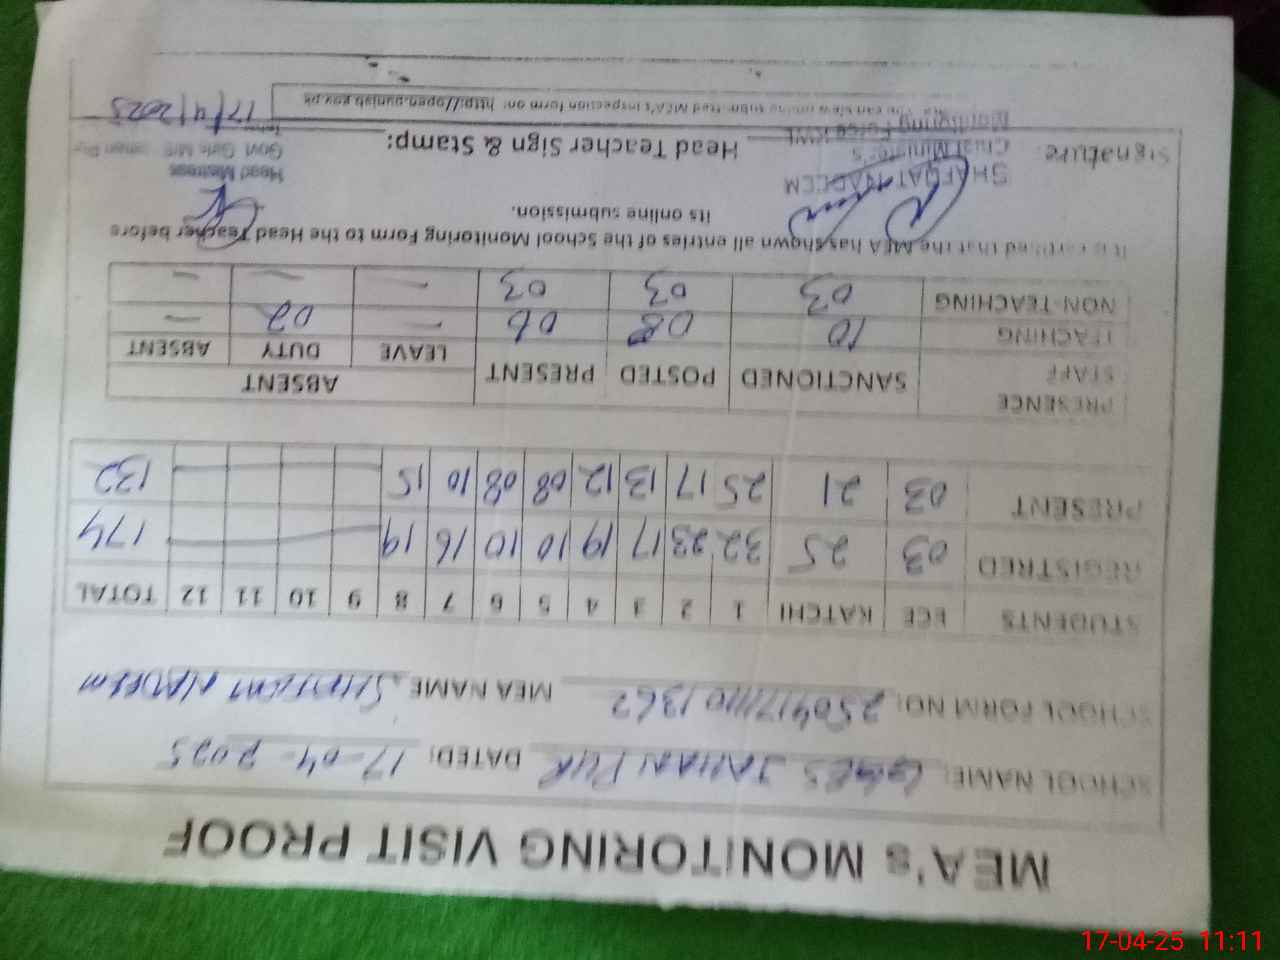 MEA's MONITORING VISIT PROOF
SCHOOL NAME: GGES JAHAN PUR DATED: 17-04-2025
SCHOOL FORM NO: MEA NAME NADEEM
STUDENTS ECE KATCHI 1 2 3 4 5 6 7 8 9 10 11 12 TOTAL
REGISTRED 03 25 32 23 17 19 10 10 16 19 174
PRESENT 03 21 25 17 13 12 08 08 10 15 132
PRESENCE STAFF SANCTIONED POSTED PRESENT ABSENT
LEAVE DUTY ABSENT
TEACHING 10 08 06 - 02 -
NON-TEACHING 03 03 03 - - -
It is certified that the MEA has shown all entries of the School Monitoring Form to the Head Teacher before
its online submission.
SHAFQAT NADEEM
Chief Minister's
Monitoring Force
Head Mistress
Govt Girls
Signature: Head Teacher Sign & Stamp:
17/4/2025
You can view online submitted MEA's inspection form on: http://open.punjab.gov.pk
17-04-25 11:11